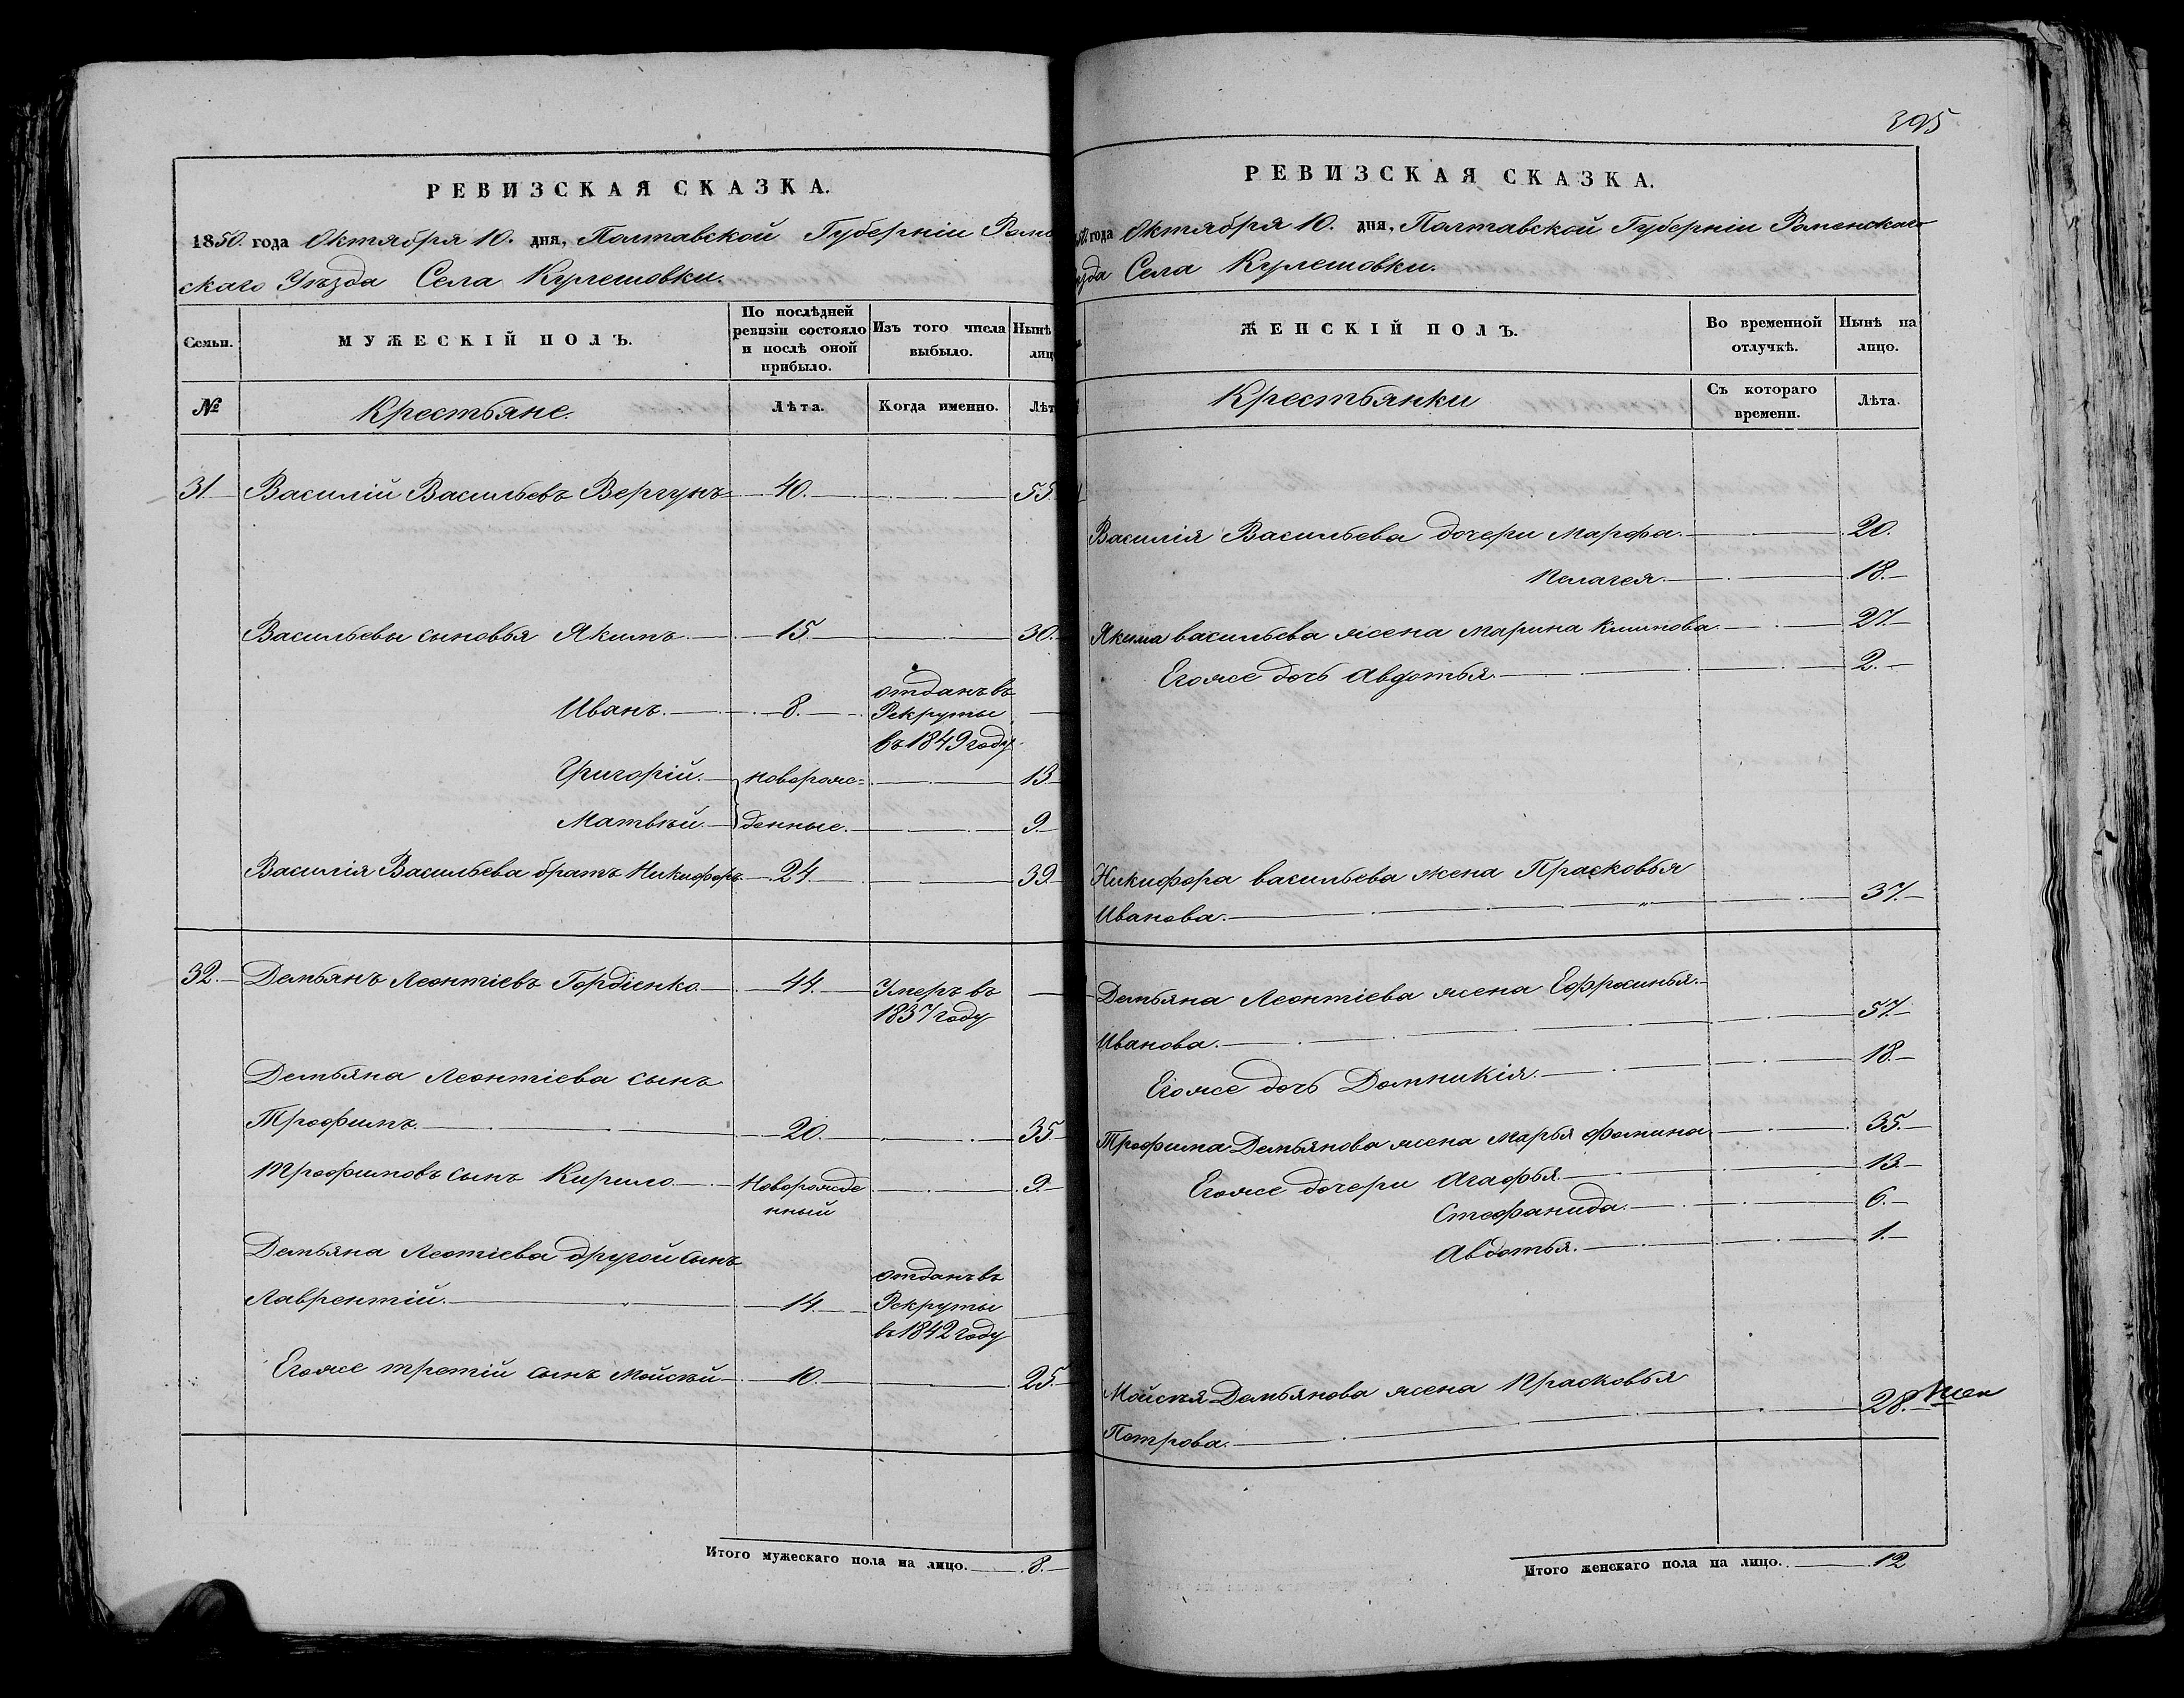 РЕВИЗСКАЯ СКАЗКА.
1850. года Октября 10. дня, Полтавской Губерніи Роме
скаго Уѣзда Села Кулешовки.
Семьи.
МУЖЕСКІЙ ПОЛЪ.
По послѣдней ревизіи состояло и послѣ оной прибыло.
Изъ того числа выбыло.
Нынѣ
лиц
№
Крестьяне.
Лѣта.
Когда именно.
Лѣт
31. Василій Васильевъ Вергунъ 40. 55.
Васильевы сыновья Якимъ. 15. 30.
Иванъ. 8. отданъ въ Рекруты въ 1849 году.
Григорій. новорож= 13.
Матвѣй. денные. 9.
Василія Васильева братъ Никифоръ 24. 39.
32. Демьянъ Леонтіевъ Гордіенко. 44. Умеръ въ 1837 году
Демьяна Леонтіева сынъ
Трофимъ. 20. 35.
Трофимовъ сынъ Кирило. Новорожде 9.
нный
Демьяна Леонтіева другой сынъ
Лаврентій. 14. отданъ въ Рекруты въ 1842 году
Егоже третій сынъ Мойсѣй 10. 25.
Итого мужескаго пола на лицо. 8.
395
РЕВИЗСКАЯ СКАЗКА.
года Октября 10. дня, Полтавской Губерніи Роменскаго
зда Села Кулешовки.
ЖЕНСКІЙ ПОЛЪ.
Во временной отлучкѣ.
Нынѣ на лицо.
Крестьянки
Съ котораго времени.
Лѣта.
Василія Васильева дочери Марфа. 20.
Пелагея. 18.
Якима васильева жена Марина Климова. 27.
Егоже дочь Авдотья. 2.
Никифора васильева жена Прасковья
Иванова. 37.
Демьяна Леонтіева жена Ефросинья.
Иванова. 57.
Егоже дочь Домникія. 18.
Трофима Демьянова жена Марья Фомина 35.
Егоже дочери Агафья. 13.
Стефанида. 6.
Авдотья. 1.
Мойсѣя Демьянова жена Прасковья
Петрова. 28.
Итого женскаго пола на лицо. 12